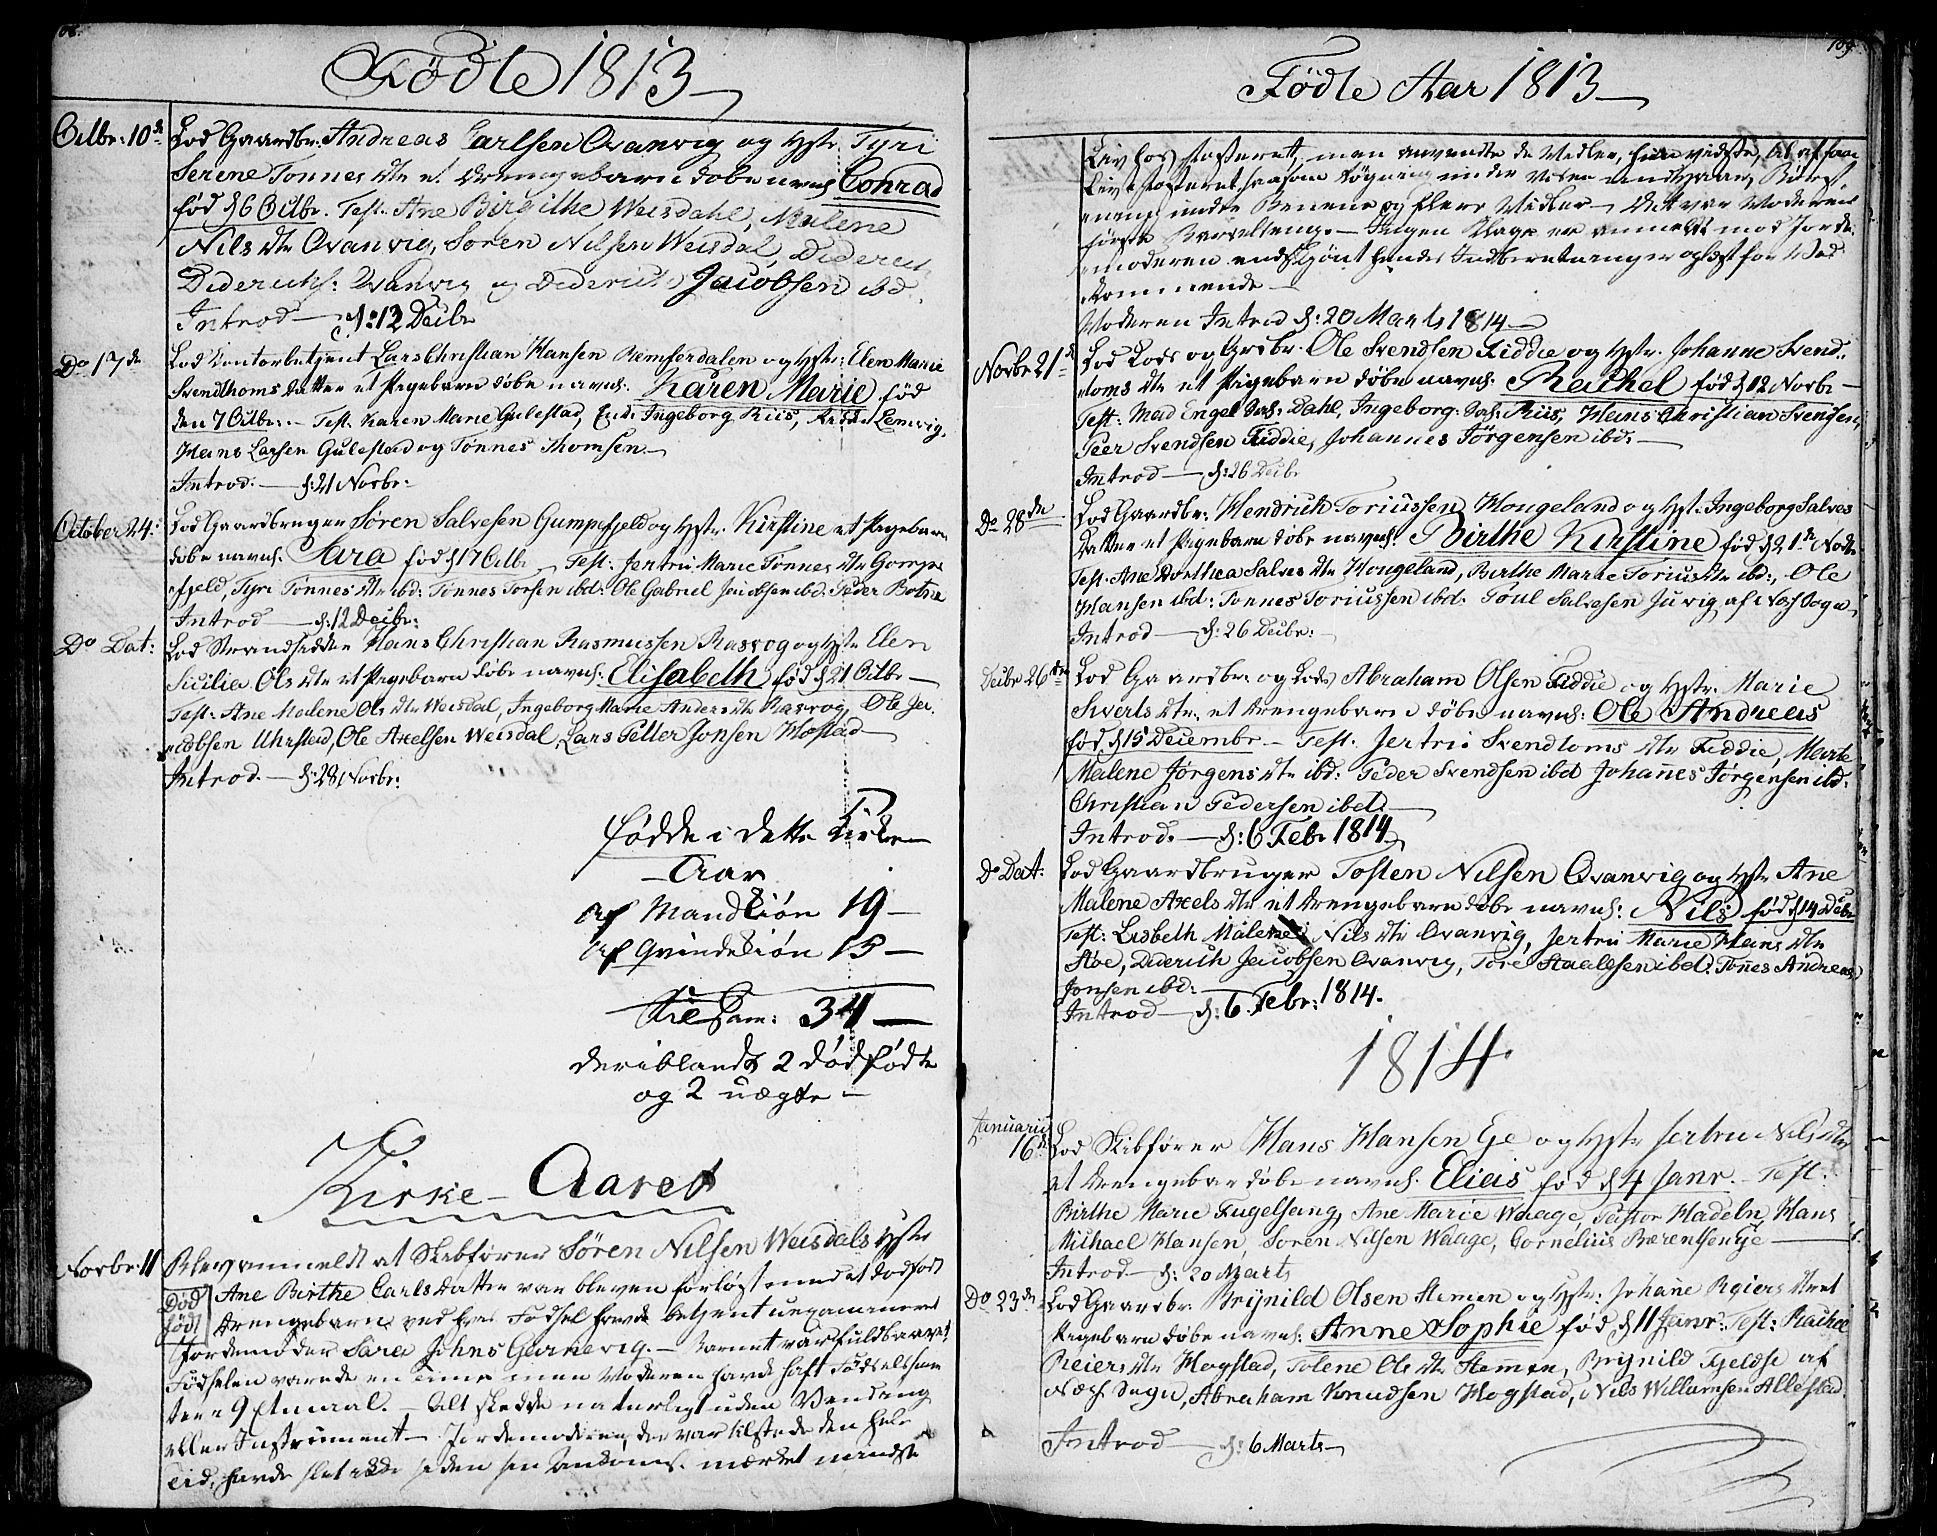 Födte 1813
Octbr: 10de Lod Gaardbr: Andreas Carlsen Qvanvig og Hstr. Tyri
Serene Tonnes dtr et drengebarn døbe navnl: Conrad
fød d 6 Octbr. Test. Ane Birgithe Weisdahl, Malene
Nils dtr Qvanvig, Soren Nilsen Weisdal, Diderich
Diderichs: Qvanvig og Diderich Jacobsen ibd.
Introd — d: 12 Decbr
Do 17de Lod Contorbetjent Lars Christian Hansen Remserdalen og Hstr: Elen Marie
Svendthoms datter et Pigebarn døbe navnl: Karen Marie fød
den 7 Octbr: — Test. Karen Marie Gulestad, Ingeborg Riis, Lemvig,
Hans Larsen Gulestad og Tonnes Thomsen.
Introd: — d: 21 Novbr:
October 24: Lod Gaardbruger Sören Salvesen Gumpefjeld og Hstr. Kirstine et Pigebarn
døbe navnl. Sara fød d 17 Octbr Test: Jertru Marie Tonnes dtr Gompe
fjeld, Tyri Tonnes dtr ibd: Tonnes Torsen ibd: Ole Gabriel Jacobsen ibd: Peder Botne
Introd — d: 12 Decbr:
Do Dat: Lod Strandsidder Hans Christian Rasmussen Rasvog og Hstr Elen
Sicilia Ols dtr et Pigebarn døbe navnl: Elisabeth fød d 21 Octbr —
Test: Ane Malene Ols dtr Weisdal, Ingeborg Marie Anders dtr Rasvog, Ole Ja-
cobsen Uhrstad, Ole Axelsen Weisdal, Lars Petter Jonsen Mostad
Introd. — d: 28 Novbr:
fødde i dette Kirke
— Aar
Af Mandkiön 19 —
Af Qvindekiön 15 —
Sum: 34 —
deriblandt 2 dödfödte
og 2 uægte —
Kirke-Aaret
Novbr: 11 Blev anmeldt at Skibförer Sören Nilsen Weisdals Hstr
Död födt Ane Birthe Carls datter var bleven forlöst med et dødfødt
drengebarn, ved hvis Fødsel havde betjent uexamineret
Jordemoder Sara Johns Gurnevig. — Barnet var fuldbaaret
Födselen varede en time men Moderen havde haft Födselsveer
9 Etmaal. — Alt skedde naturligt uden Vending
eller Instrument — Jordemoderen, der var tilstede den hele
Tid, havde slet ikke siden sin Ankomst mærket mindste
109
Födte Aar 1813
Liv hos Fosteret, men anvendte de Midler, hun vidste, til at faae
Liv i Fosteret saasom
under Benene og flere Midler — Det var Moderens
første Barselseng. — Ingen Klage er anmeldt mod Jorde-
moderen endskjönt hendes Indberetninger oplæst for Ved-
kommende —
Moderen Introd d: 20 Marts 1814 —
Novbr 21de Lod Lods og Grbr. Ole Svendsen Fiddie og Hstr. Johanne Svend-
toms dtr et Pigebarn döbe navnl: Rachel fød d 12 Novbr —
Test: Mad Engel Dahl, Ingeborg Riis, Hans Christian Svensen
Peer Svendsen Fiddie, Johannes Jörgensen ibd: —
Introd — d: 26 Decbr
Do 28de Lod Gaardbr. Hendrich Toriussen Hougeland og Hst: Ingeborg Salves
Datter et Pigebarn døbe navnl: Birthe Kirstine fød d 21de Novbr
Test. Ane Dorthea Salves dtr Hougeland, Birthe Marie Torius dtr ibd:, Ole
Hansen ibd: Tonnes Toriussen ibd. Poul Salvesen Juvig af Næs Sogn
Introd — d: 26 Decbr: —
Decbr 26de Lod Gaardbr: og Lods Abraham Olsen Fiddie og Hstr. Marie
Siverts dtr. et drengebarn døbe navnl: Ole Andreas
fød d 15 Decembr — Test. Jertru Svendtoms dtr Fiddie, Marte
Malene Jörgens dtr ibd: Peder Svendsen ibd Johanes Jörgensen ibd.
Christian Pedersen ibd. —
Introd. — d: 6 Febr 1814
Do Dat: Lod Gaardbruger Tosten Nilsen Qvanvig og Hstr Ane
Malene Axels dtr et drengebarn døbe navnl: Nils fød d 14 Decbr
Test: Lisbeth Malene Nils dtr Qvanvig, Jertru Marie Hans dtr
Støe, Diderich Jacobsen Qvanvig, Tore Staalesen ibd: Tones Andreas
Jonsen ibd:
Introd — d: 6 Febr: 1814.
1814.
Januarii 16de Lod Skibförer Hans Hansen Eje og Hstr Jertru Nils dtr
et drengebar døbe navnl. Elieis fød d 4 Janr. Test:
Birthe Marie Fugelsang, Ane Marie Waage, Pastor Hadeln, Hans
Michael Hansen, Soren Nilsen Waage, Cornelius Bærentsen Eje —
Introd — d: 20 Marts
Do 23de Lod Gaardbr. Brynild Olsen Stemen og Hstr: Johane Reiers dtr et
Pigebarn døbe navnl: Anne Sophie fød d 11 Janr: Test: Rachel
Reiers dtr Hogstad, Tolene Ols dtr Stemen, Brynild Fjeldse af
Næs Sogn, Abraham Knudsen Hogstad, Nils Willumsen Allestad
Introd — d: 6 Marts —